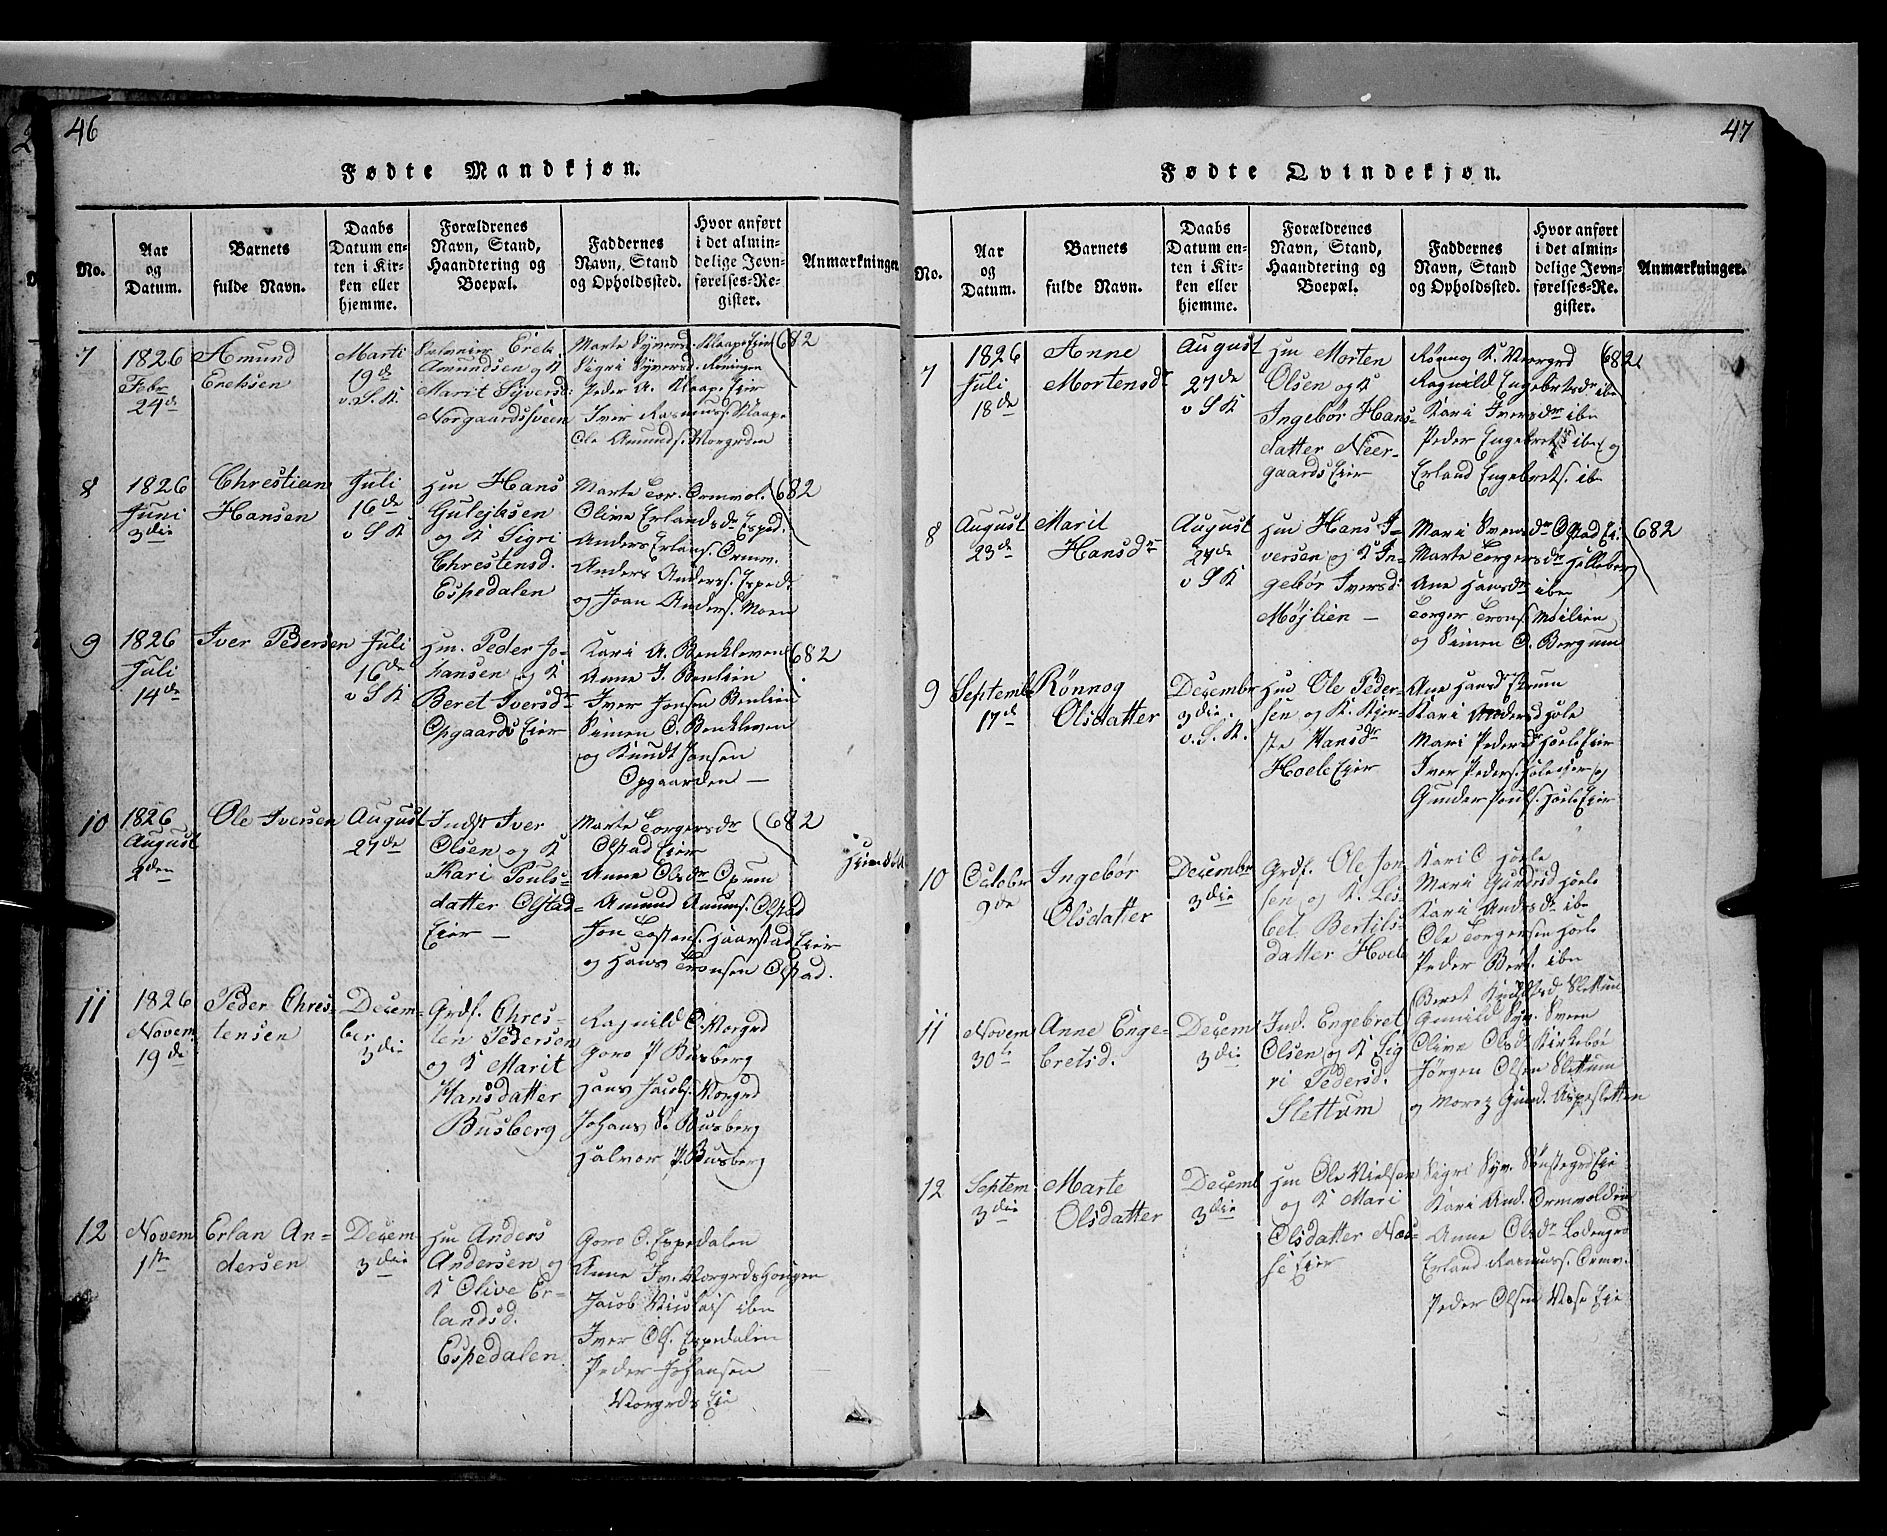 46
Fødte Mandkjøn.
No.
Aar og Datum.
Barnets fulde Navn.
Daabs Datum enten i Kirken eller hjemme.
Forældrenes Navn, Stand, Haandtering og Boepæl.
Faddernes Navn, Stand og Opholdssted.
Hvor anført i det almindelige Jevnførelses-Register.
Anmærkninger.
7
1826
Febr
24de
Amund
Ericksen
Marti
19de
v. S. K.
Erik
Amundsen og K
Marit Syversd:
Norgaardsveen
Marte Syversd. Klaape Eier
Sigri Syversd.
Peder A. Klaape Eier
Iver Rasmuss. Klaape
Ole Amunds. Norgrden
682
8
1826
Juni
3die
Chrestian
Hansen
Juli
16de
v S K
Hm Hans
Gulejhsen
og K Sigri
Chrestensd.
Espedalen
Marte Tor. Ormvol.
Olive Erlandsdr Esped.
Anders Erlans. Ormv.
Anders Anderss. Esped.
og Joan Anders. Moen
682
9
1826
Juli
14de
Iver Pedersen
Juli
16de
v S K
Hm. Peder Jo-
hansen og K
Beret Iversdr
Opgaards Eier
Kari A. Benkleven
Anne I. Benlien
Iver Jonsen Benlien
Simen O. Benkleven
og Knudt Jonsen
Opgaarden —
682
10
1826
August
2den
Ole Iversen
August
27de
Indst Iver
Olsen og K
Kari Pouls-
datter Olstad-
Eier —
Marte Torgersdr
Olstad Eier
Anne Olsdr Opum
Amund Amuns. Olstad
Jon Tostens. Haarstad Eier
og Hans Tronsen Olstad.
682
11
1826
Novem
19de
Peder Chres-
tensen
Decem-
ber
3die
Grdf. Chres-
ten Pedersen
og K Marit
Hansdatter
Busberg
Ragnild O. Norgrd
Goro P Busberg
Hans Jacobs. Norgrd
Johans S. Busberg
Halvor P. Busberg
12
Novem
1ste
Erlan An-
dersen
Decem
3die
Hm Anders
Andersen og
K Olive Er-
landsd.
Espedalen
Goro O. Espedalen
Anne Iv. Norgrds Hougen
Jacob Nicolais ibn
Iver Ols. Espedalen
Peder Johansen
Norgrds Eie
47
Fødte Qvindekjøn.
No.
Aar og Datum.
Barnets fulde Navn.
Daabs Datum enten i Kirken eller hjemme.
Forældrenes Navn, Stand, Haandtering og Boepæl.
Faddernes Navn, Stand og Opholdssted.
Hvor anført i det almindelige Jevnførelses-Register.
Anmærkninger.
7
1826
Juli
18de
Anne
Mortensdr
August
27de
v S K
Hm Morten
Olsen og K
Ingebør Hans-
datter Neer-
gaards Eier
Rønnog K. Norgrd
Ragnild Engebretsdr ibn
Kari Iversdr ibn
Peder Engebrets ibn og
Erland Engebrets. ibn
682
8
August
23de
Marit
Hansdr
August
27de
v S K
Hm Hans I-
versen og K In-
gebør Iversd:
Møjlien —
Mari Svensdr Olstad Ei:
Marte Torgersdr Helleberg
Ane Hansdr ibn
Torger Trons Moilien
og Simen O. Bergum
682
9
Septembr
17de
Rønnog
Olsdatter
Decembr
3die
v. S. K.
Hm Ole Peder-
sen og K. Kjer-
ste Hansdr
Hoele Eier
Ane Hansdr
Kari Andersd Hole
Mari Pedersdr Hoele Eier
Iver Peders. Hole Eier og
Gunder Pouls. Hoele Eier
10
October
9de
Ingebør
Olsdatter
Decembr
3die
Grdf. Ole Jon-
sen og K. Lis-
bet Bertils-
datter Hoele
Kari O Hoele
Mari Gundersd Hoele
Kari Andrsdr ibn
Ole Torgersen Hoele
Peder Bert. ibn
11
Novem
30te
Anne Enge-
bretsd.
Decem
3die
Ind. Engebret
Olsen og K Sig
ri Pedersd.
Slettum
Beret Slettum
Gunild Syv. Sveen
Olive Olsd Kirkebøe
Jørgen Olsen Slettum
og Morez Gund. Aspesletten
12
Septem
3die
Marte
Olsdatter
Decemb
3die
Hm Ole Nielsen
og K Mari
Olsdatter Næs-
se Eier
Sigri Syv. Synstegrd Eie
Kari And. Ormvolden
Anne Olsdr Lodengrd
Erland Rasmuss. Ormv.
Peder Olsen Næse Eie